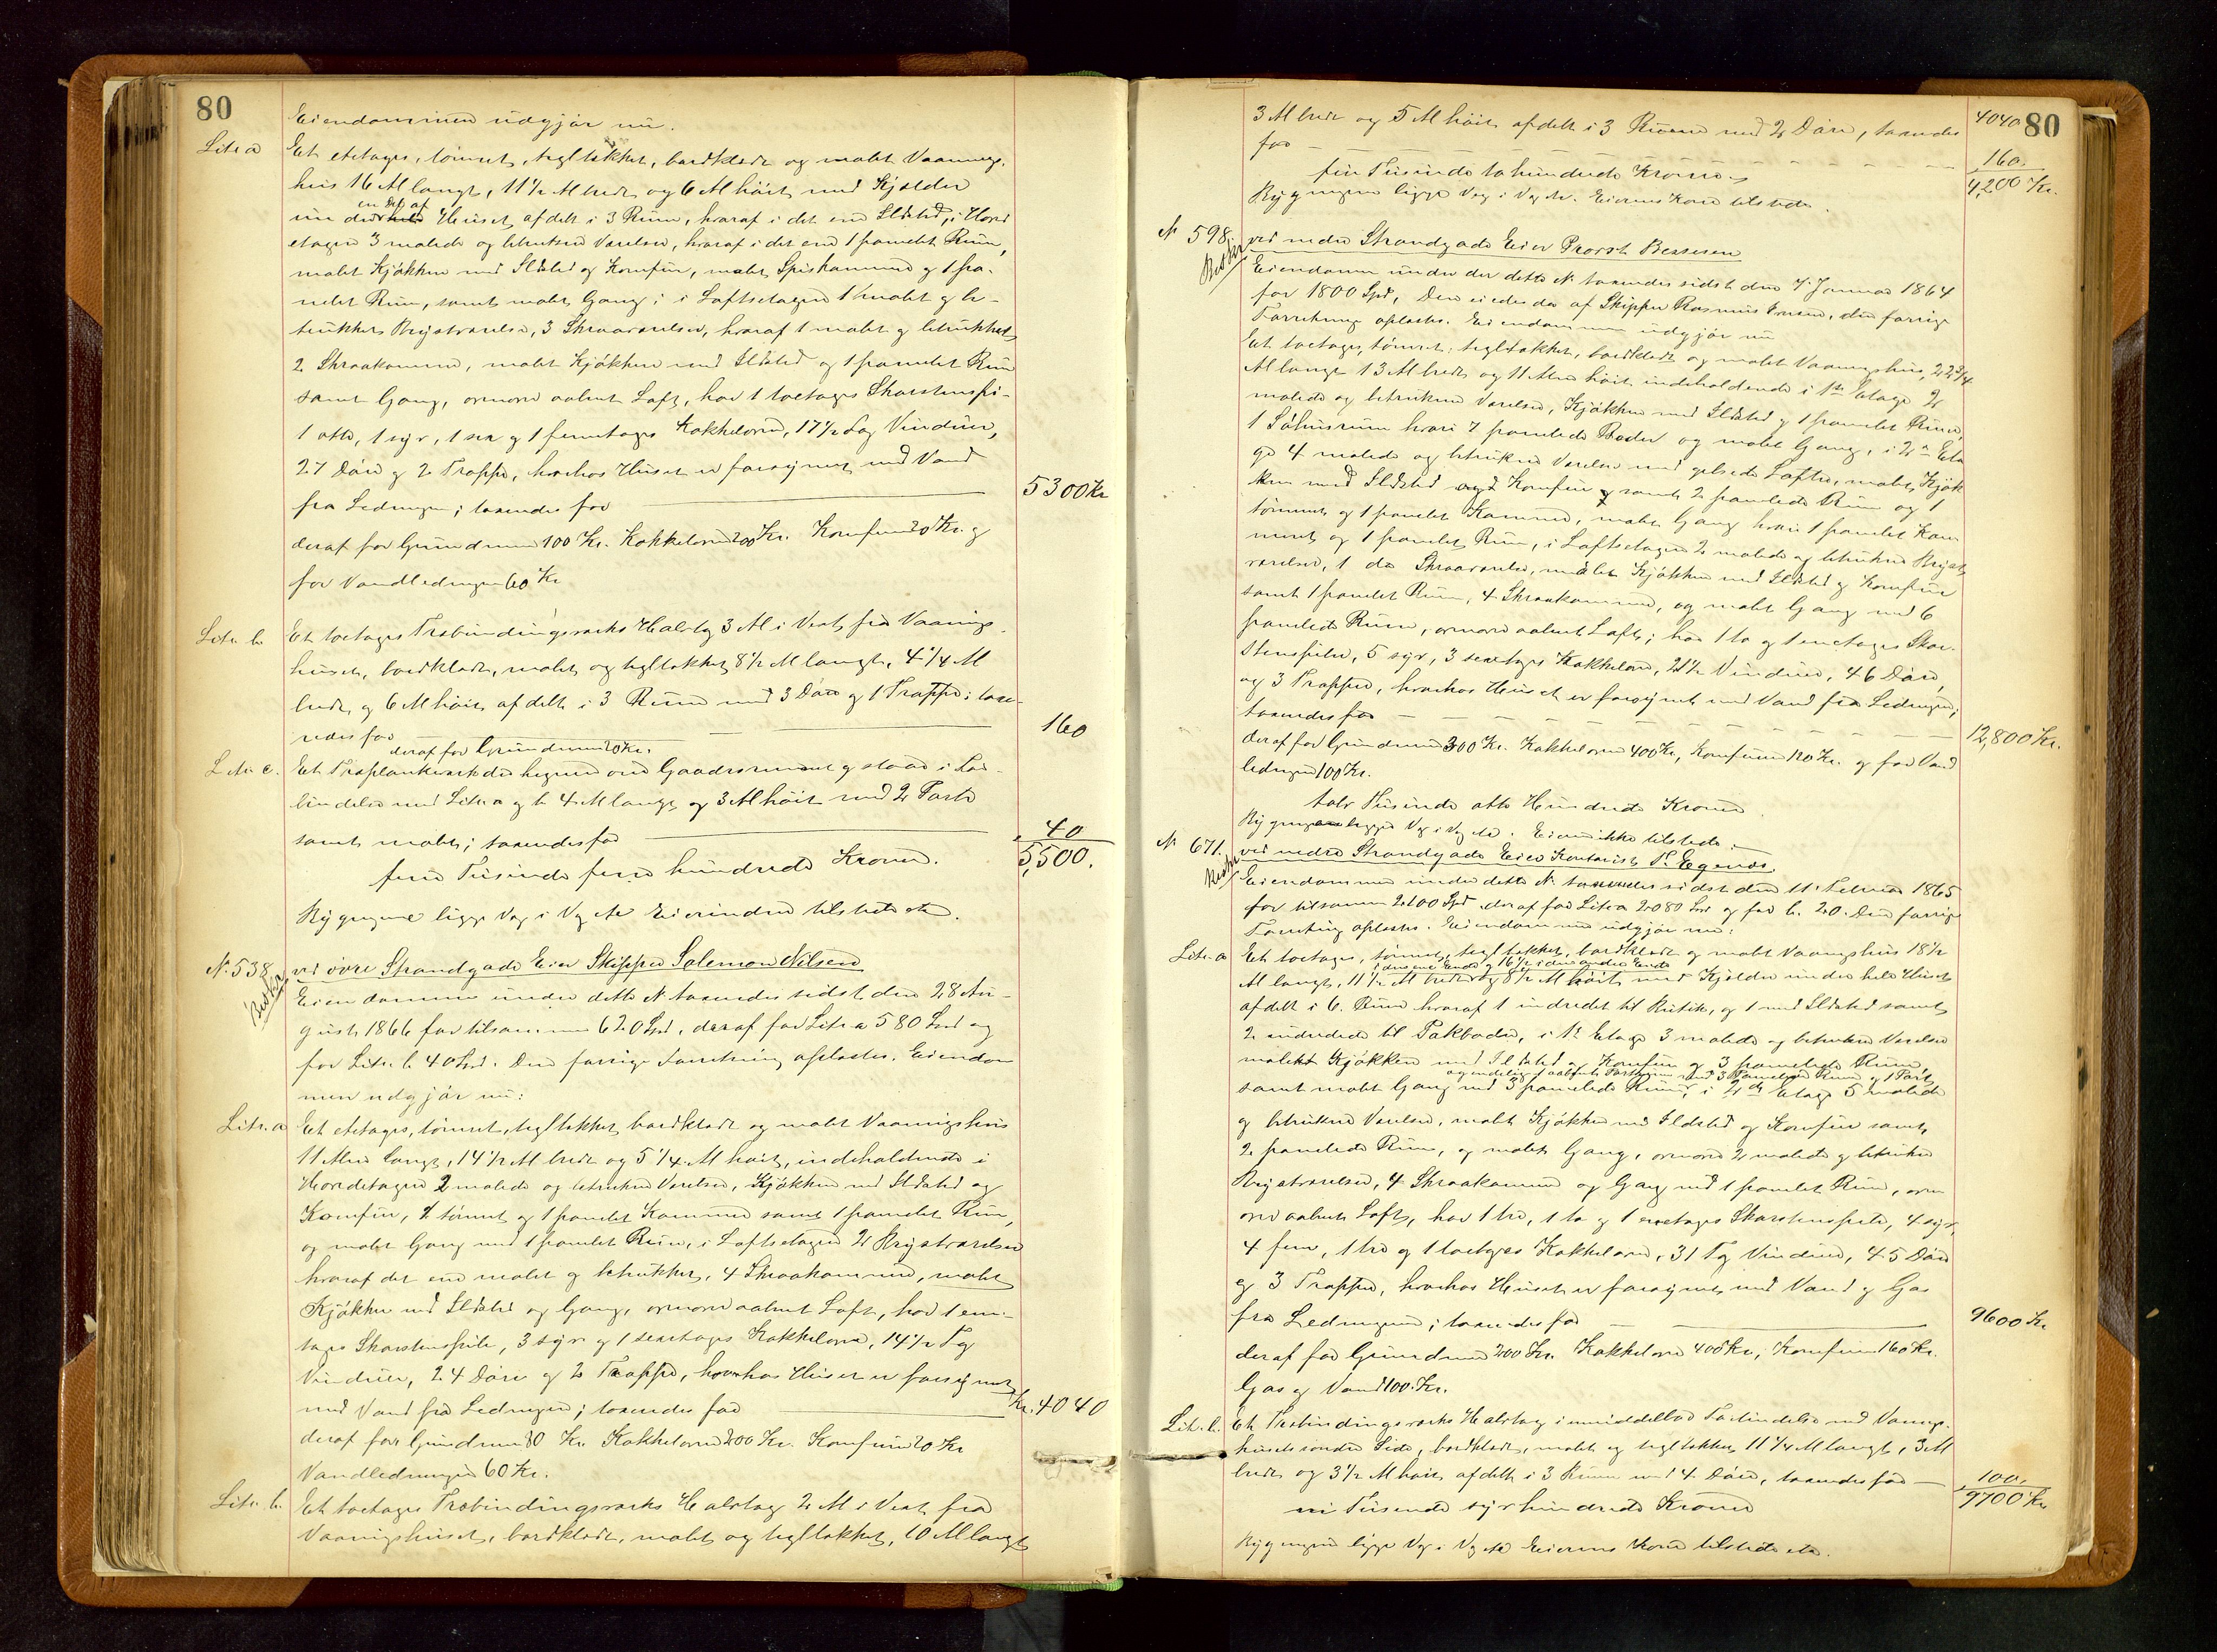 80
Eiendommen udgjør nu.
Litr a Et etetages, tømret, tegltækket, bordklædt og malet Vaanings-
hus 16 Al langt, 11 1/2 Al bredt og 6 Al høit med Kjælder
en Del af
under Huset, afdelt i 3 Rum, hvoraf i det ene Ildsted, i Hoved
etagen 3 malede og betrukne Værelser, hvoraf i det ene 1 panelet Rum,
malet Kjøkken med Ildsted og Komfur, malet Spiskammer og 1 pa-
nelet Rum, samt malet Gang; i Loftsetagen 1 malet og be-
trukket Krystværelse, 3 Skraaværelser, hvoraf 1 malet og betrukket,
2 Skraakammere, malet Kjøkken med Ildsted og 1 panelet Rum
samt Gang, ovenover aabent Loft, har 1 toetages Skorstenspi-
1 otte, 1 syv, 1 sex og 1 femetages Kakkelovne, 17 1/2 Fag Vinduer,
27 Døre og 2 Trapper, hvorhos Huset er forsynet med Vand
fra Ledningen; taxeredes for 5300 Kr
deraf for Grundmur 100 Kr. Kakkelovne 200 Kr. Komfurer 20 Kr. og
for Vandledningen 60 Kr
Litr. b Et toetages Træbindingsværks Halvtag 3 Al i Vest fra Vaanings-
huset, bordklædt, malet og tegltækket 8 1/2 Al langt, 4 1/4 Al
bredt, og 6 Al høit, afdelt i 3 Rum med 3 Døre og 1 Trappe; taxe-
redes for 160
deraf for Grundmur 20 Kr.
Litr. c. Et Træplankeværk der hegner om Gaardsrummet og staar i For-
bindelse med Litr a og b 4 Al langt og 3 Al høit med 2 Porte
samt malet; taxeredes for 40
fem Tusinde fem hundrede Kroner. 5,500.
Bygningerne ligge Væg i Væg etc Eierinden tilstede etc.
N. 538 ved øvre Strandgade Eier Skipper Salomon Nilsen
Eiendommen under dette N. taxeredes sidst den 28 Au-
gust 1866 for tilsammen 620 Spd, deraf for Litr a 580 Spd og
for Litr. b 40 Spd. Den forrige Forretning oplæstes. Eiendom
men udgjør nu:
Litr. a Et etetages, tømret, tegltækket bordklædt og malet Vaaningshus
11 Alen langt, 14 1/2 Al bredt og 5 1/4 Al høit, indeholdende i
Hovedetagen 2 malede og betrukne Værelser, Kjøkken med Ildsted og
Komfur, 1 tømret og 1 panelet Kammer samt 1 panelet Rum,
og malet Gang med 1 panelet Rum, i Loftsetagen 2 Krystværelser
hvoraf det ene malet og betrukket, 4 Skraakammere, malet
Kjøkken med Ildsted og Gang, ovenover aabent Loft, har 1 een-
tages Skorstenspibe, 3 syv og 1 sextages Kakkelovne, 14 1/2 Fag
Vinduer, 24 Døre og 2 Trapper, hvorhos Huset er forsynet
med Vand fra Ledningen; taxeredes for Kr. 4040
deraf for Grundmur 80 Kr. Kakkelovne 200 Kr. Komfurer 20 Kr
Vandledningen 60 Kr.
Litr. b. Et toetages Træbindingsværks Halvtag 2 Al i Vest fra
Vaaningshuset, bordklædt, malet og tegltækket, 10 Al langt
80
4040
3 Al bredt og 5 Al høit, afdelt i 3 Rum med 2 Døre, taxeredes
for 160.
fire Tusinde to hundrede Kroner 4,200 Kr.
Bygningerne ligge Væg i Væg etc. Eierens Kone tilstede.
N 598. ved nedre Strandgade Eier Provst Bessesen
Eiendommen under dette N. taxeredes sidst den 7 Januar 1864
for 1800 Spd, den eiedes da af Skipper Rasmus, den forrige
Forretning oplæstes. Eiendommen udgjør nu
Et toetages, tømret, tegltækket, bordklædt og malet Vaaningshus, 22 3/4
Al langt 13 Al bredt og 11 Alen høit indeholdende i 1ste Etage 2
malede og betrukne Værelser, Kjøkken med Ildsted og 1 panelet Rum,
1 hvori 7 panelede Boder og malet Gang, i 2den Eta
ge 4 malede og betrukne Værelser med gipsede Lofter, malet Kjøk
ken med Ildsted og Komfur samt 2 panelede Rum og 1
tømret og 1 panelet Kammer, malet Gang hvori 1 panelet Kam
mer og 1 panelet Rum, i Loftsetagen 2 malede og betrukne Kryst
værelser, 1 do Skraaværelse, malet Kjøkken med Ildsted og Komfur
samt 1 panelet Rum, 4 Skraakammere, og malet Gang med 6
panelede Rum, ovenover aabent Loft; har 1 to og 1 eenetages Skor-
stenspiber, 5 syv, 3 sextages Kakkelovne, 21 1/2 Vinduer, 46 Døre,
og 3 Trapper, hvorhos Huset er forsynet med Vand fra Ledningen;
taxeredes for 12,800 Kr.
deraf for Grundmur 300 Kr. Kakkelovne 400 Kr, Komfurer 120 Kr. og for Vand
ledningen 100 Kr.
tolv Tusinde otte Hundrede Kroner
Bygningen ligge Væg i Væg etc. Eieren ikke tilstede.
N. 671. ved nedre Strandgade Eier Kontorist P. Egenæs.
Eiendommen under dette N. taxeredes sidst den 11. Februar 1865
for tilsammen 2100 Spd, deraf for Litr a 2080 Spd og for b. 20. Den forrige
Forretning oplæstes. Eiendommen udgjør nu:
Litr. a Et toetages, tømret, tegltækket, bordklædt og malet Vaaningshus 18 1/2
i den ene Ende og 16 1/2 i den anden Ende
Al langt, 11 1/2 Al bredt og 8 1/2 Al høit med Kjælder under hele Huset
afdelt i 6 Rum hvoraf 1 indredet til Butik, og 1 med Ildsted samt
2 indredede til Pakboder, i 1ste Etage 3 malede og betrukne Værelser
malet Kjøkken med Ildsted og Komfur og 3 panelede Rum,
og endelig 1 aabent Portrum med 3 Panelede Rum og 1 Port,
samt malet Gang med 3 panelede Rum; i 2den Etage 5 malede
og betrukne Værelser, malet Kjøkken med Ildsted og Komfur samt,
2 panelede Rum, og malet Gang, ovenover 2 malede og betrukne
Krystværelser, 4 Skraakammere og Gang med 1 panelet Rum, oven
over aabent Loft, har 1 tre, 1 to og 1 eenetages Skorstenspibe, 4 syv,
4 fem, 1 tre og 1 toetages Kakkelovne, 31 Fag Vinduer, 45 Døre
og 3 Trapper, hvorhos Huset er forsynet med Vand og Gas
fra Ledningerne; taxeredes for 9600 Kr
deraf for Grundmur 200 Kr. Kakkelovne 400 Kr, Komfurer 160 Kr.
Gas og Vand 100. Kr.
Litr. b. Et Træbindingsværks Halvtag i umiddelbar Forbindelse med Vaanings-
husets søndre Side, bordklædt, malet og tegltækket 11 1/4 Al langt, 3 Al
bredt og 3 1/2 Al høit, afdelt i 3 Rum med 4 Døre, taxeredes for 100.
ni Tusinde syv hundrede Kroner 9700 Kr
Bygningerne ligge Væg i Væg etc Eierens Kone tilstede etc.